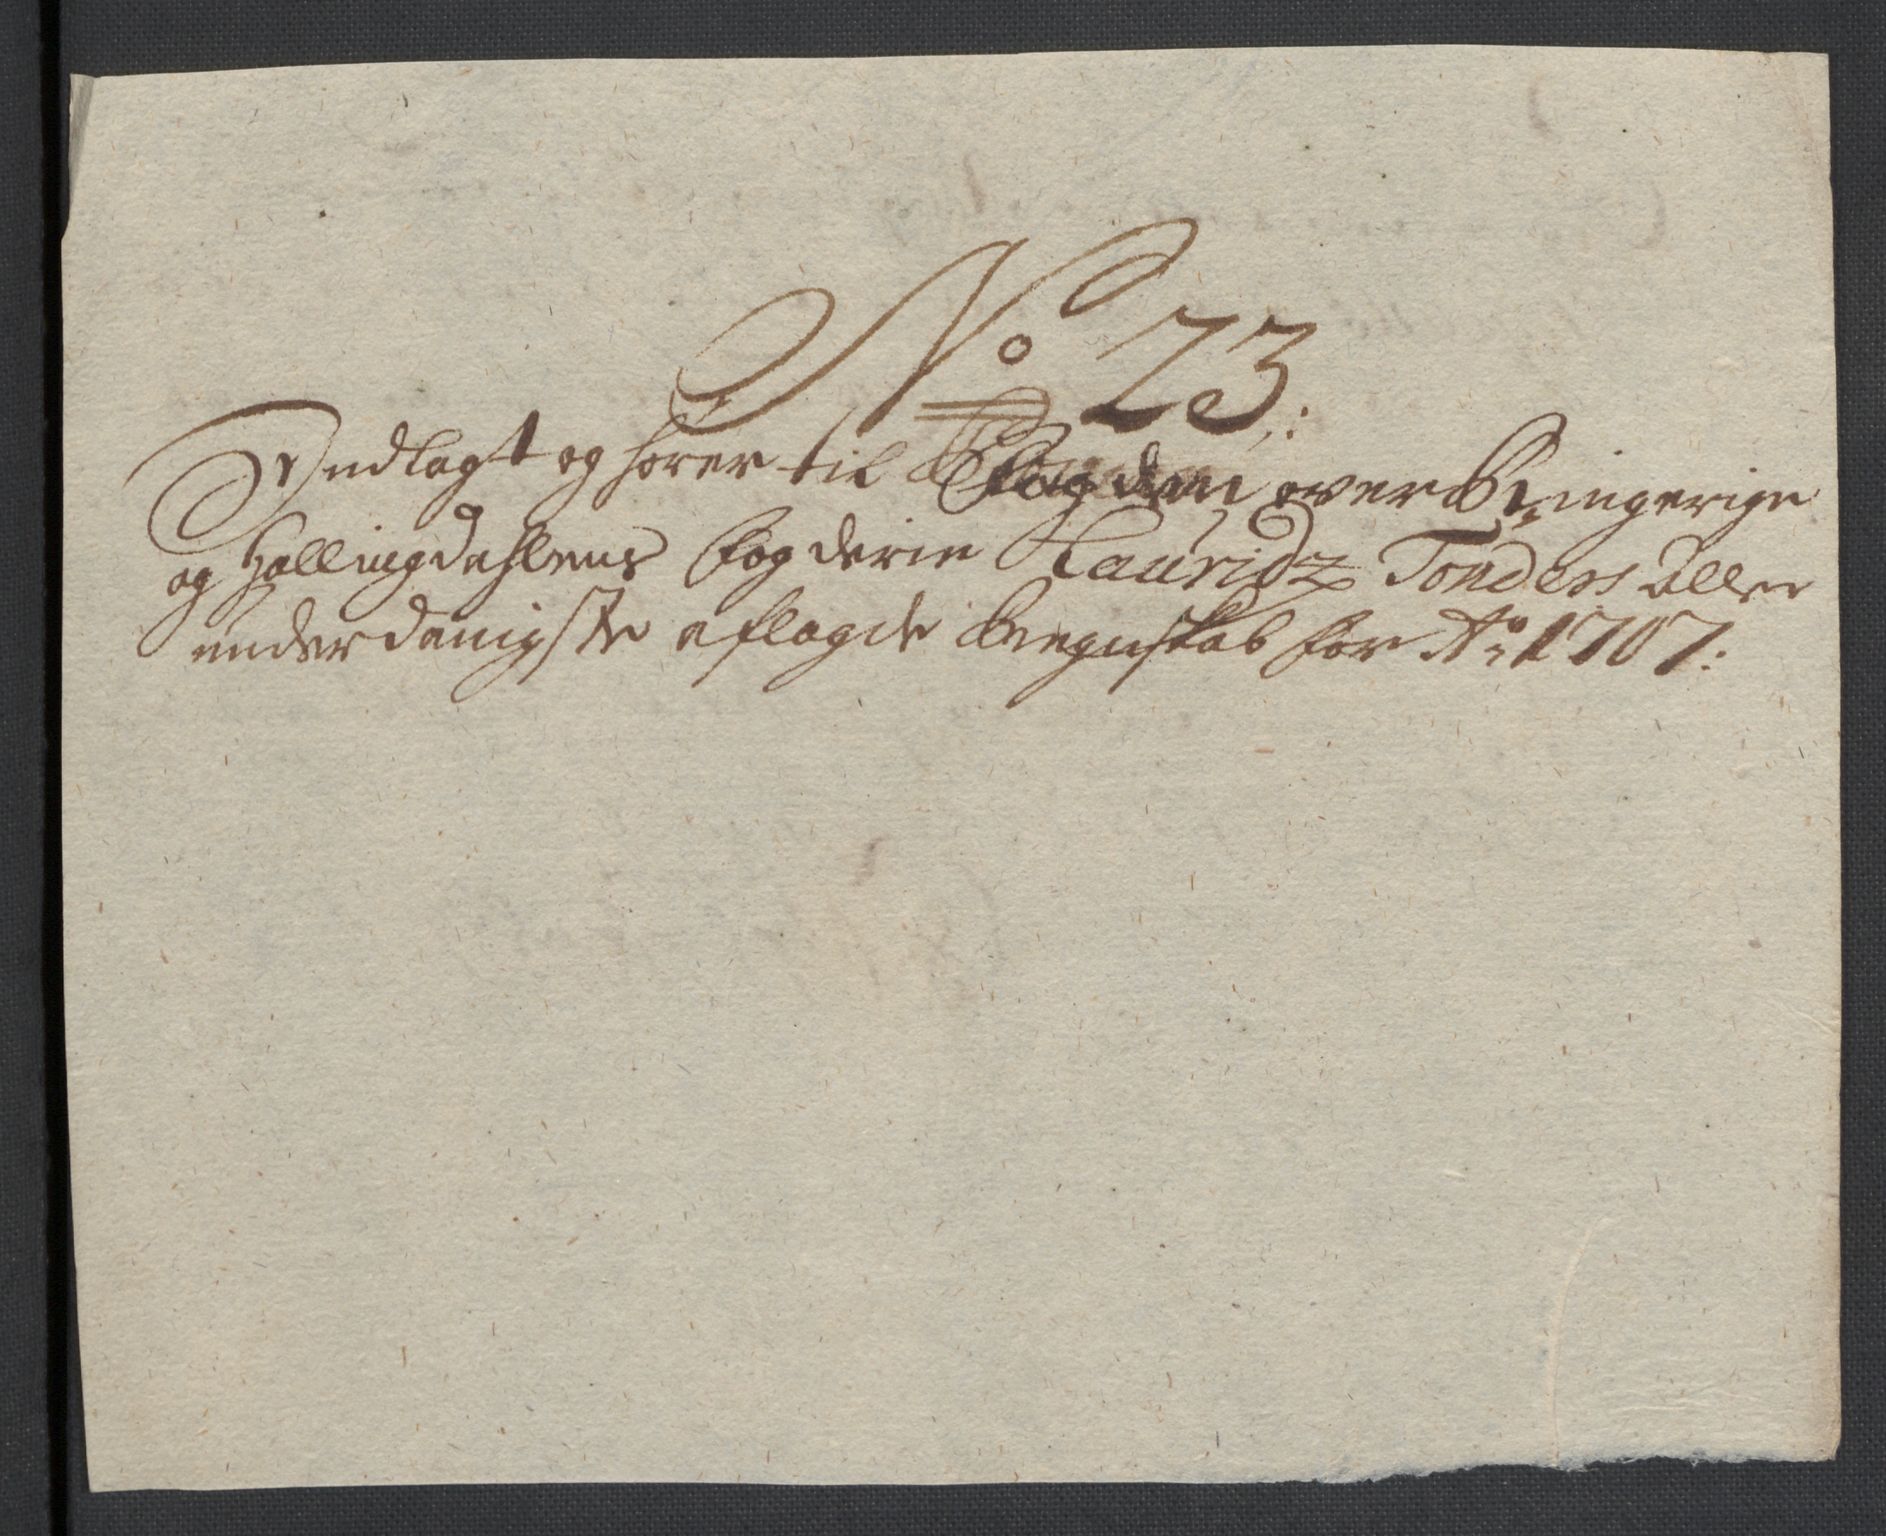 No 23:
Indlagt og hører til Fogden over Ringerige
og Hallingdahlens fogderie Lauridz Tonders Aller
underdanigste aflagde Regnskab for Ao 1707: